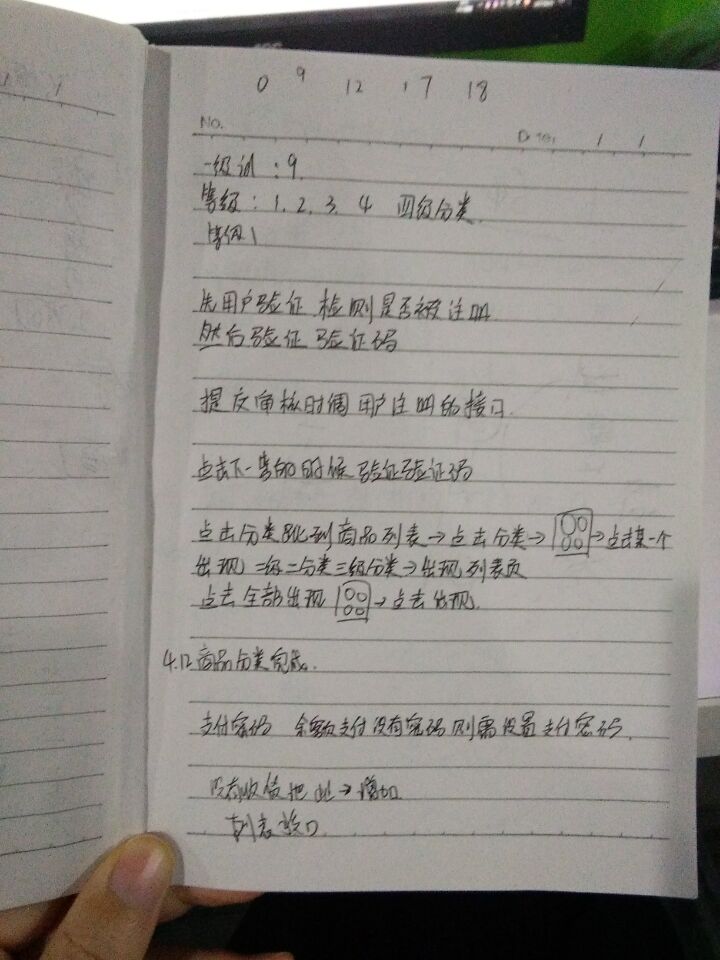 0 9 12 17 18
No. Date / /
一级训:9.
等级:1. 2. 3. 4 四级分类.
等级1
先用户验证 检测是否被注册
然后验证 验证码
提交审核时调用户注册的接口.
点击下一步的时候验证验证码
点击分类跳到商品列表→点击分类→ →点击某一个
出现 二级二分类三级分类→出现列表页
点击全部出现 →点击出现.
4.12商品分类完成.
支付密码 余额支付没有密码则需设置支付密码.
没有收货地址→增加
列表接口